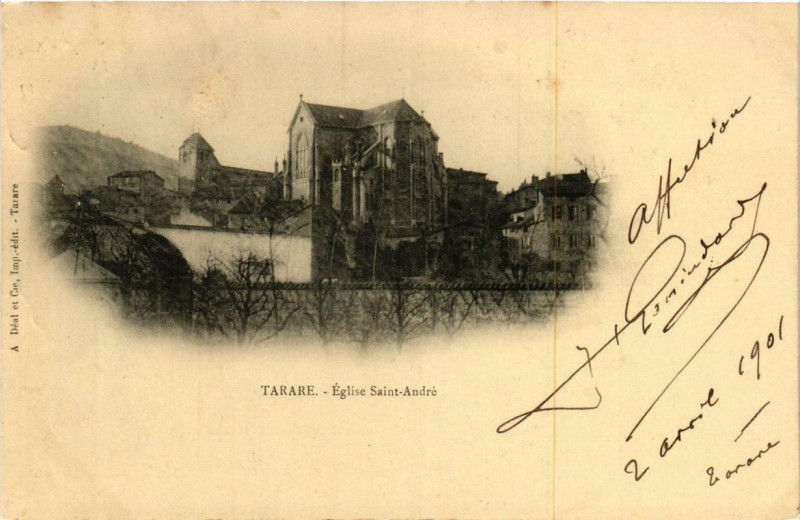 A Déal et Cie, Imp.-édit. - Tarare
TARARE. - Église Saint-André
Affection
2 avril 1901
Tarare